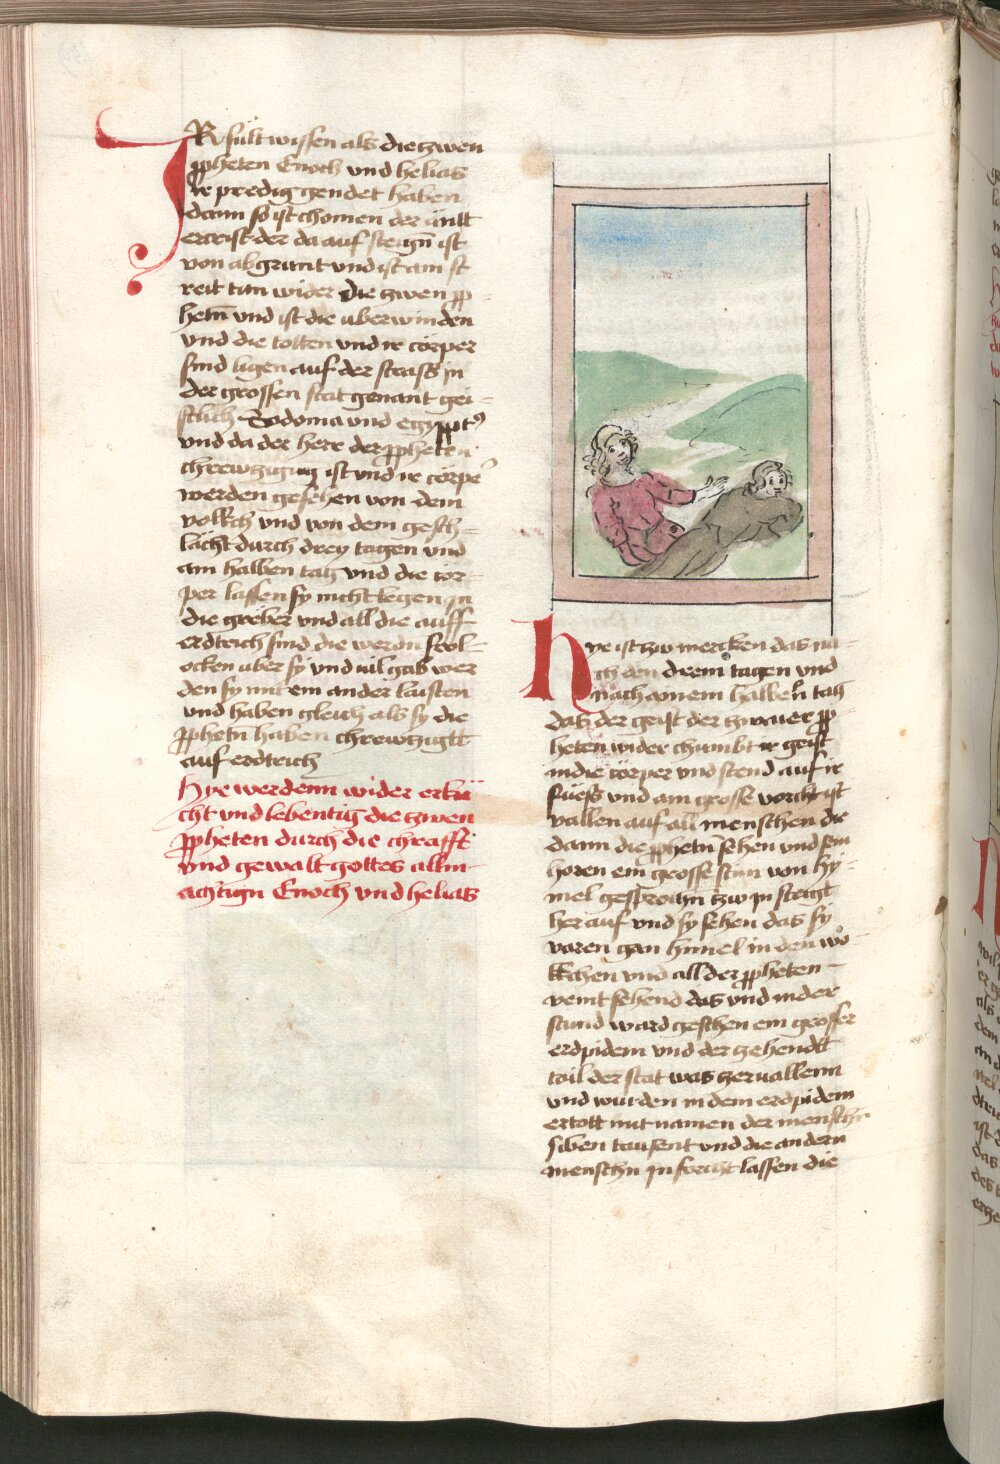 IR sült wissen als die zwen
ppheten Enoch vnd helias
ir predig gendet haben
dann so ist chomen der änllt
ercrist der da auf steign̄ ist
von abgrunt vnd ist am st
reit tun wider die zwen pp-
hetn̄ vnd ist die uberwinden
vnd die totten vnd ir cörper
sind ligen auf der strass in
der grossen stat genant gei-
stlich Sodoma vnd egyppt9
vnd da der herr der ppheten
chrewtzigung ist vnd ir cörpe
werden gesehen von dem
volkch vnd von dem gesch-
lächt durch drey tagen vnd
am halben tag vnd die cör-
per lassen sy nicht legen in
die greber vnd all die auff
erdtreich sind die werdn frol-
ocken uber sy vnd uil gab wer
den sy mit ein ander laisten
vnd haben gleich als sy die
pphetn̄ haben chrewtzigtt
auf erdtreich
Hye werdenn wider erkü
cht vnd lebentig die zwen
ppheten durch die chrafft
vnd gewalt gottes allm-
ächtign Enoch vnd helias
Hye ist zw mercken das na-
ch den drein tagen vnd
nach ainem halben tag
das der geist der zwaier pp
heten wider chumbt ir geist
in die cörper vnd stend auf ir
füess vnd am grosse vorcht ist
vallen auf all menschen die
dann die pphetn̄ sehen vnd sein
horen ein grosse stim von hy-
mel gesprochn zw in steigt
her auf vnd sy sehen das sy
varen gan himel in den wo
lkchen vnd all der ppheten
veint sehend das vnd in der
stund ward geschen ein grosser
erdpidem vnd der zehendtt
tail der stat was zeruallenn
vnd wurden in dem erdpidem
ertott mit namen der menschn
siben tausent vnd die andern
menschn in forcht lassen die